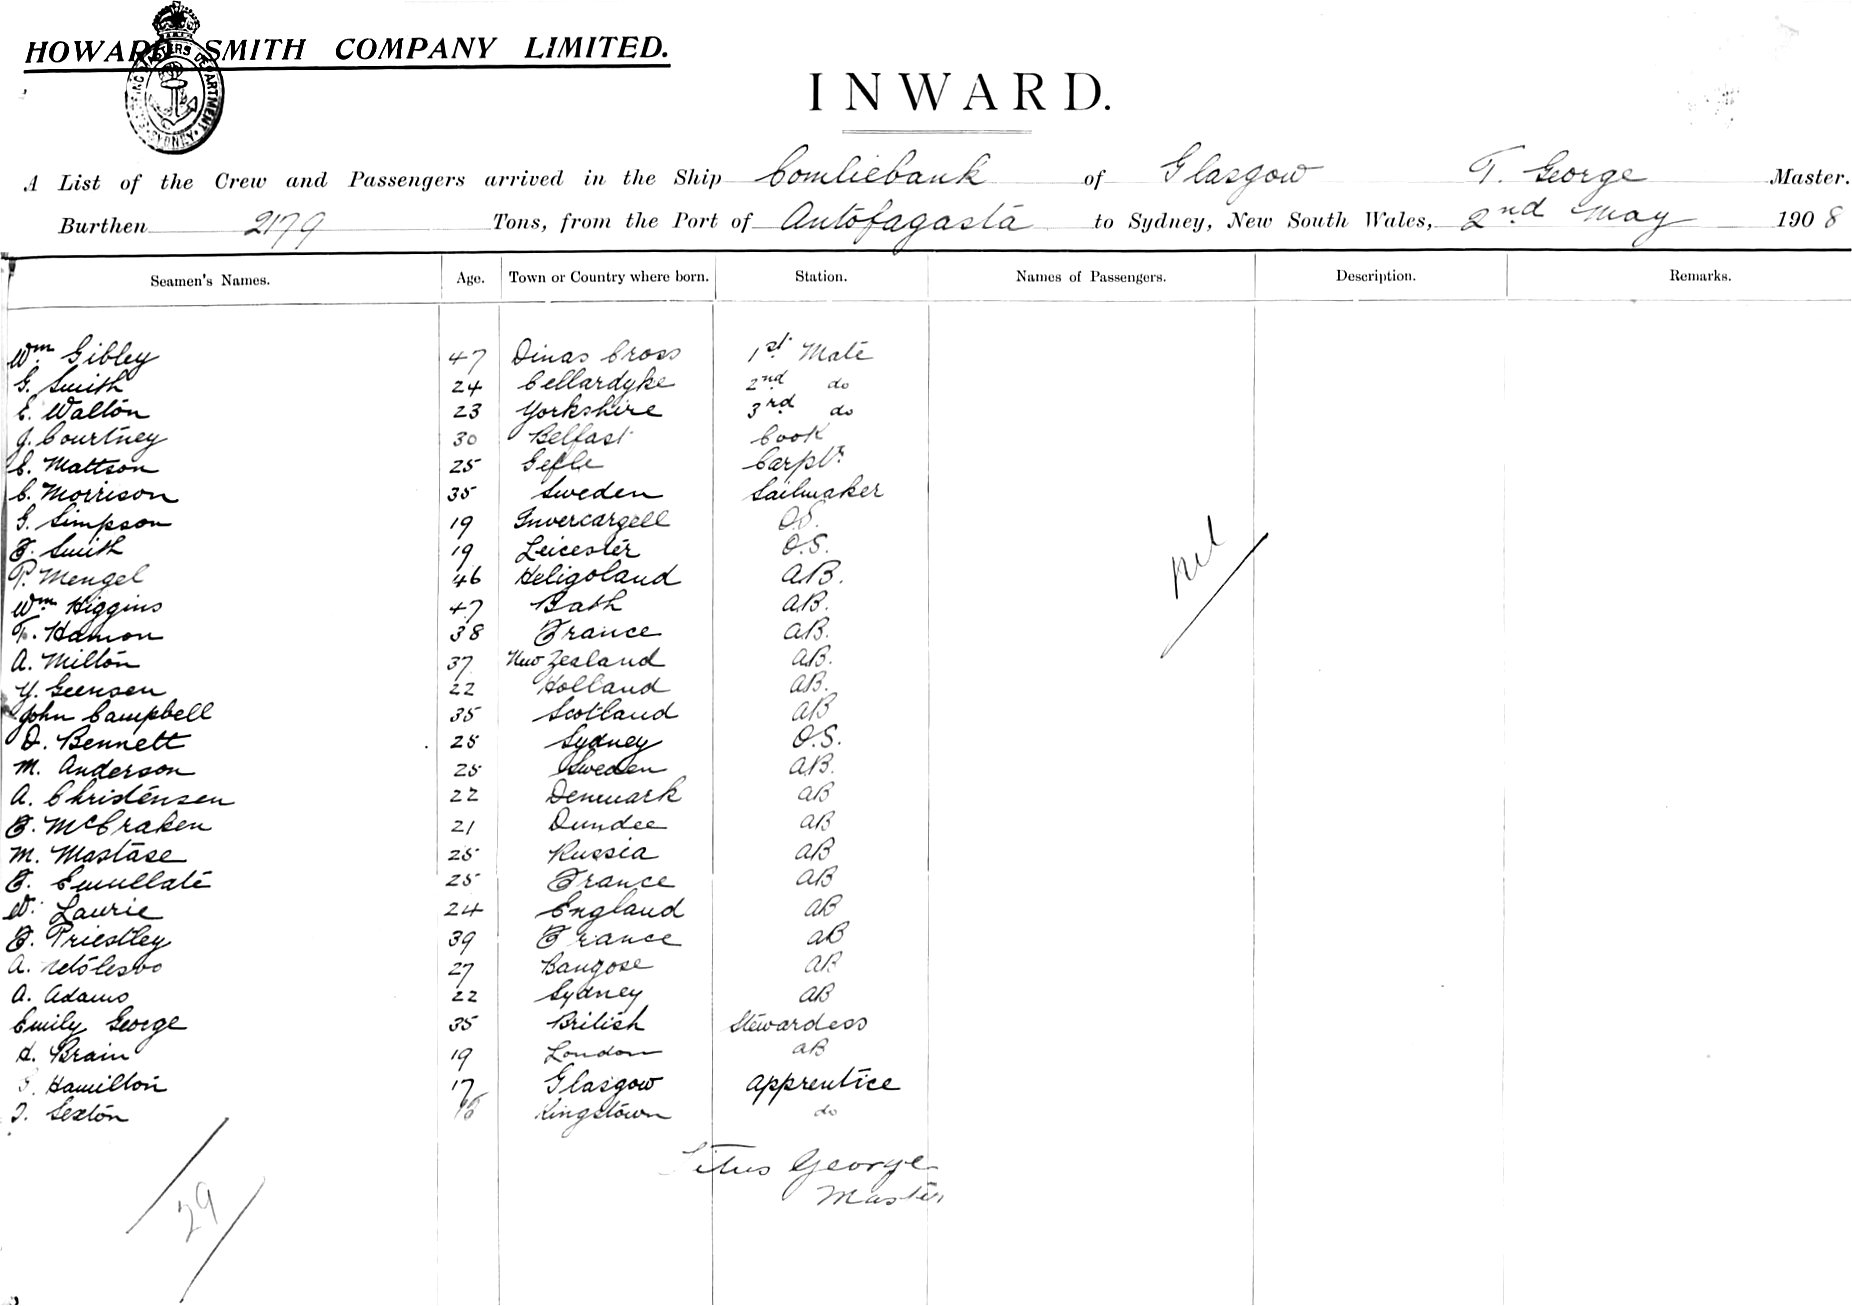 HOWARD SMITH COMPANY LIMITED.
SHIPPING MASTERS DEPARTMENT
SYDNEY
INWARD.
A List of the Crew and Passengers arrived in the Ship Comliebank of Glasgow T. George Master.
Burthen 2179 Tons, from the Port of Antofagasta to Sydney, New South Wales, 2nd May 1908
Seamen's Names. Age. Town or Country where born. Station. Names of Passengers. Description. Remarks.
Wm Gibley 47 Dinas Cross 1st Mate
G. Smith 24 Cellardyke 2nd do
E. Walton 23 Yorkshire 3rd do
J. Courtney 30 Belfast Cook
C. Mattson 25 Gefle Carptr
C. Morrison 35 Sweden Sailmaker
G. Simpson 19 Invercargell O.S.
F. Smith 19 Leicester O.S.
P. Mengel 46 Heligoland AB.
Wm Higgins 47 Bath AB.
F. Hamon 38 France AB.
A. Milton 37 New Zealand AB.
Y. Geensen 22 Holland AB.
John Campbell 35 Scotland AB
D. Bennett 25 Sydney O.S.
M. Anderson 25 Sweden AB.
A. Christensen 22 Denmark AB
F. McCraken 21 Dundee AB
M. Mastase 25 Russia AB
F. Emullate 25 France AB
W. Laurie 24 England AB
F. Priestley 39 France AB
A. 27 Bangose AB
A. Adams 22 Sydney AB
Emily George 35 British Stewardess
H. Brain 19 London AB
Hamilton 17 Glasgow Apprentice
Sexton 18 Kingstown do
nil
Titus George
Master
29